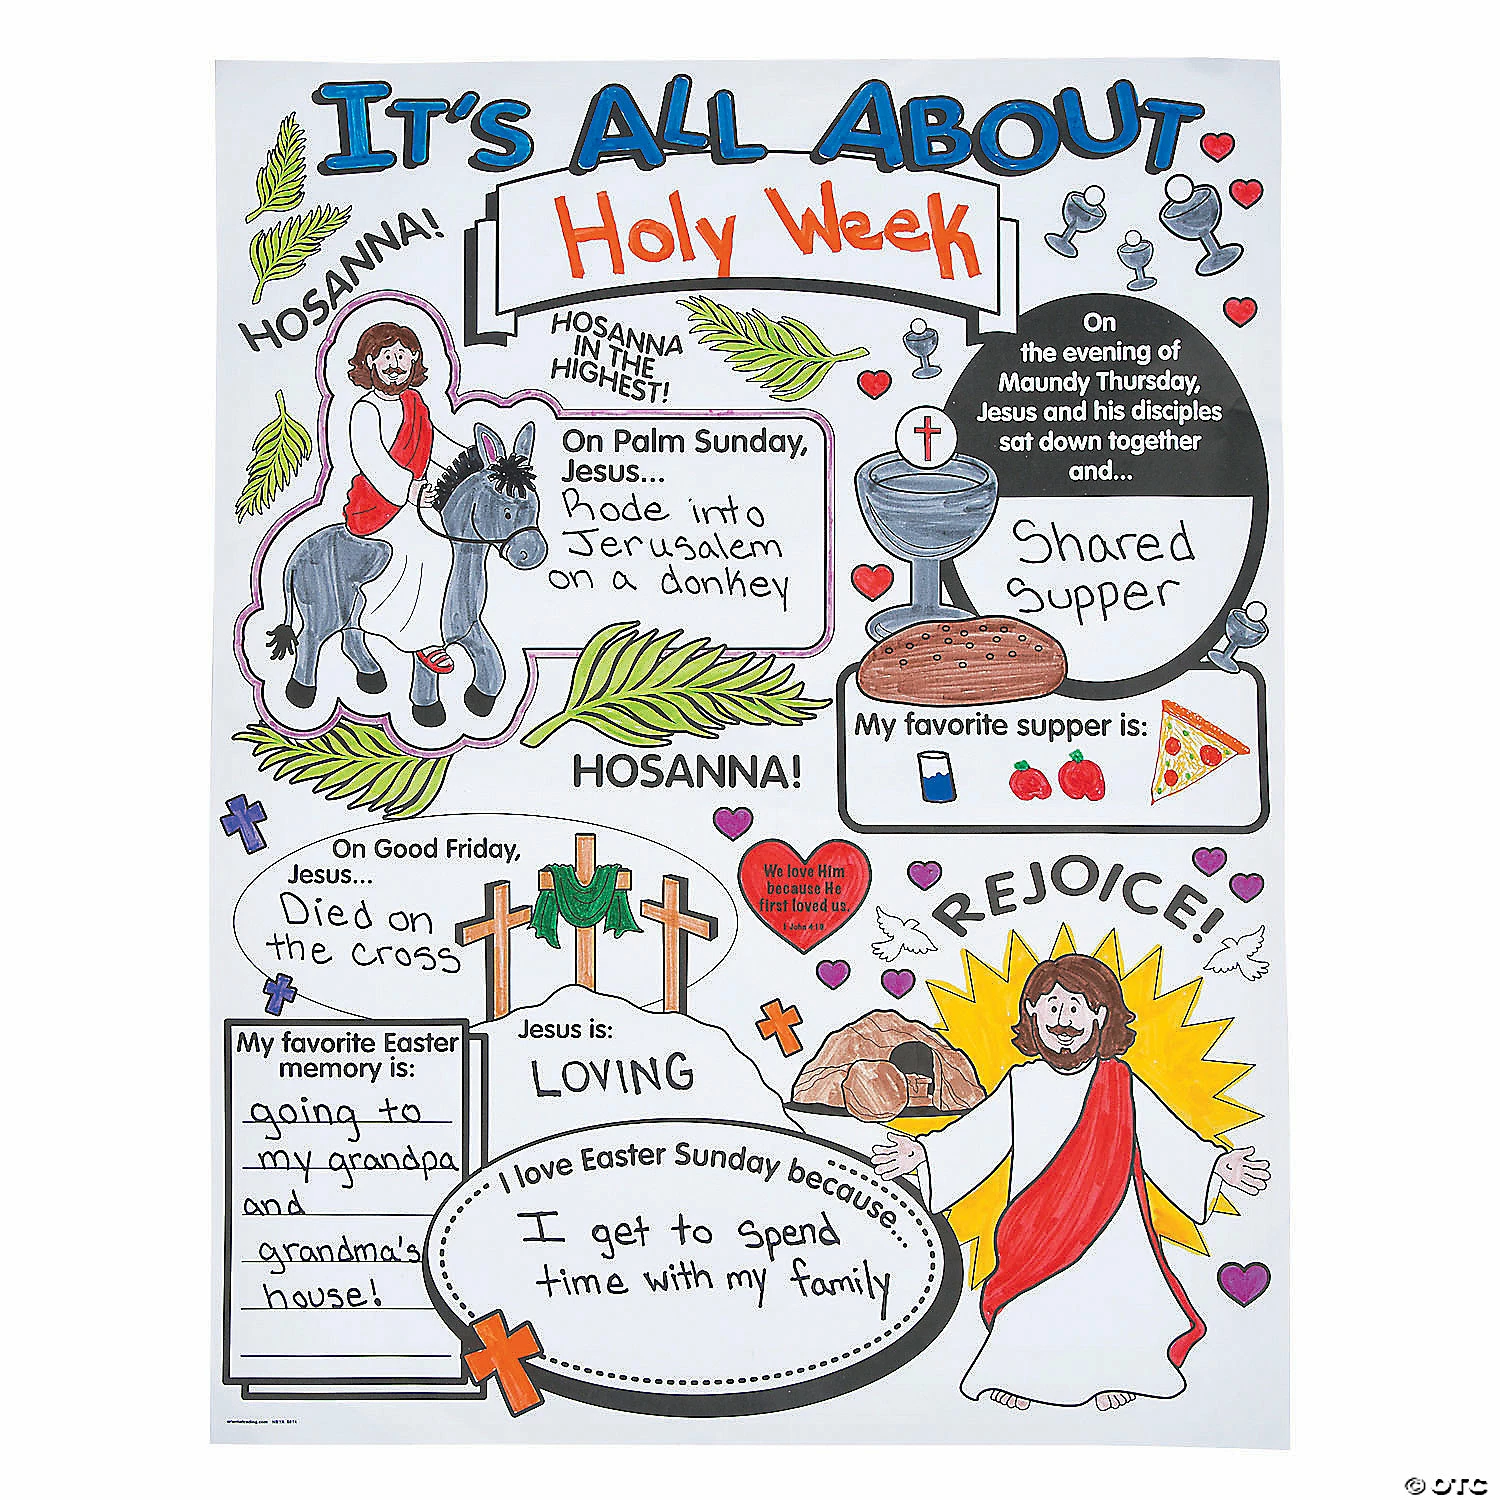 IT'S ALL ABOUT
Holy Week
HOSANNA!
HOSANNA
IN THE
HIGHEST!
On Palm Sunday,
Jesus...
Rode into
Jerusalem
on a donkey
On
the evening of
Maundy Thursday,
Jesus and his disciples
sat down together
and...
Shared
Supper
My favorite supper is:
HOSANNA!
On Good Friday,
Jesus...
Died on
the cross
We love Him
because He
first loved us.
1 John 4:19
REJOICE!
Jesus is:
LOVING
My favorite Easter
memory is:
going to
my grandpa
and
grandma's
house!
I love Easter Sunday because...
I get to spend
time with my family
orientaltrading.com
© OTC